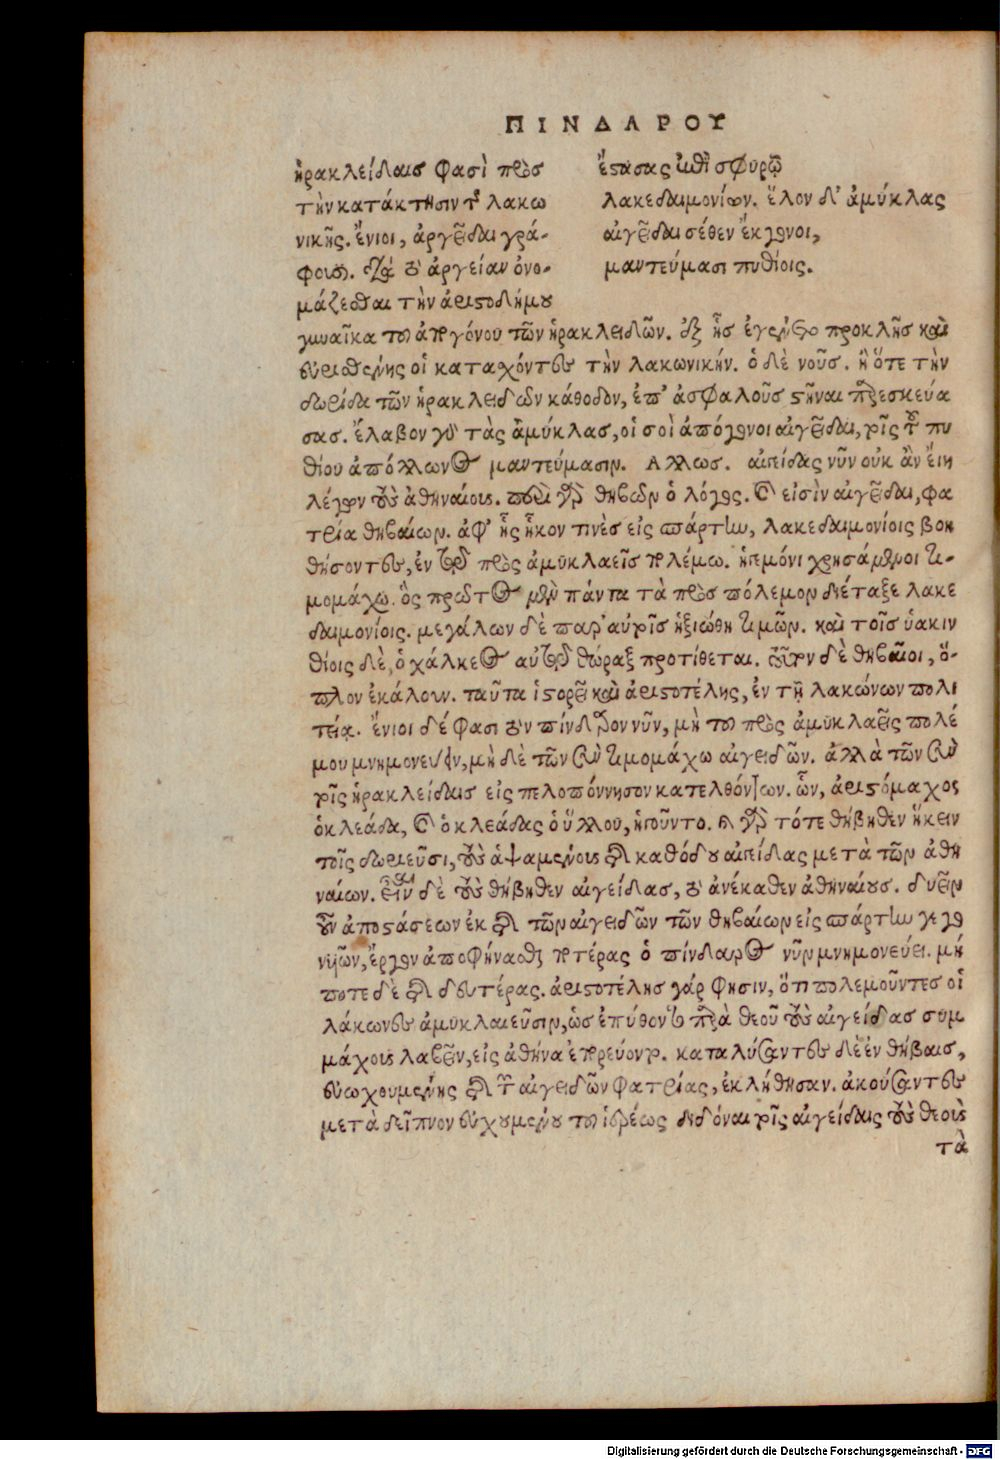 ΠΙΝΔΑΡΟΥ
ἡρακλείδαις φασὶ πρὸς
τὴν κατάκτησιν τῆς λακω
νικῆς. ἔνιοι, ἀργεῖδαι γρά-
φουσι. διὰ τὸ ἀργείαν ὀνο-
μάζεσθαι τὴν ἀριστοδήμου
ἔστασας ἐπὶ σφυρῷ
λακεδαιμονίων. ἕλον δ' ἀμύκλας
αἰγεῖδαι σέθεν ἔκγονοι,
μαντεύμασι πυθίοις.
γυναῖκα τοῦ ἀπογόνου τῶν ἡρακλειδῶν. ἐξ ἧς ἐγένετο προκλῆς καὶ
εὐρισθένης οἱ κατασχόντες τὴν λακωνικήν. ὁ δὲ νοῦς. ἢ ὅτε τὴν
δωρίδα τῶν ἡρακλειδῶν κάθοδον, ἐπ' ἀσφαλοῦς στῆναι παρεσκεύα
σας. ἔλαβον γοῦν τὰς ἀμύκλας, οἱ σοὶ ἀπόγονοι αἰγεῖδαι, τοῖς τοῦ πυ
θίου ἀπόλλωνος μαντεύμασιν. Αλλως. αἰγείδας νῦν οὐκ ἂν εἴη
λέγων τοὺς ἀθηναίους. περὶ γὰρ θηβῶν ὁ λόγος. καὶ εἰσὶν αἰγεῖδαι, φα
τρία θηβαίων. ἀφ' ἧς ἧκον τινὲς εἰς σπάρτην, λακεδαιμονίοις βοη
θήσοντες, ἐν τῷ πρὸς ἀμυκλαεῖς πολέμω. ἡγεμόνι χρησάμενοι τι-
μομάχω. ὃς πρῶτος μὲν πάντα τὰ πρὸς πόλεμον διέταξε λακε
δαιμονίοις. μεγάλων δὲ παρ' αὐτοῖς ἠξιώθη τιμῶν. καὶ τοῖς ὑακιν
θίοις δὲ, ὁ χάλκεος αὐτῷ θώραξ προτίθεται. τοῦτον δὲ θηβαῖοι, ὅ-
πλον ἐκάλουν. ταῦτα ἱστορεῖ καὶ ἀριστοτέλης, ἐν τῇ λακώνων πολι
τείᾳ. ἔνιοι δέ φασι τὸν πίνδαρον νῦν, μὴ τοῦ πρὸς ἀμυκλαεῖς πολέ
μου μνημονεύειν, μὴ δὲ τῶν σὺν τιμομάχω αἰγειδῶν. ἀλλὰ τῶν σὺν
τοῖς ἡρακλείδαις εἰς πελοπόννησον κατελθόντων. ὧν, ἀριστόμαχος
ὁ κλεάδα, καὶ ὁ κλεάδας ὁ ὕλλου, ἡγοῦντο. οὐ γὰρ τότε θήβηθεν ἥκειν
τοῖς δωριεῦσι, τοὺς ἁψαμένους τῆς καθόδου αἰγείδας μετὰ τῶν ἀθη
ναίων. εἶναι δὲ τοὺς θήβηθεν αἰγείδας, τὸ ἀνέκαθεν ἀθηναίους. δυεῖν
οὖν ἀποστάσεων ἐκ τῆς τῶν αἰγειδῶν τῶν θηβαίων εἰς σπάρτην γεγο
νυιῶν, ἔργον ἀποφήνασθαι ποτέρας ὁ πίνδαρος νῦν μνημονεύει. μή
ποτε δὲ τῆς δευτέρας. ἀριστοτέλης γάρ φησιν, ὅτι πολεμοῦντες οἱ
λάκωνες ἀμυκλαιεῦσιν, ὡς ἐπύθοντο παρὰ θεοῦ τοὺς αἰγείδας συμ
μάχους λαβεῖν, εἰς ἀθήνας ἐπορεύοντο. καταλύσαντες δὲ ἐν θήβαις,
εὐωχουμένης τῆς τῶν αἰγειδῶν φατρίας, ἐκλήθησαν. ἀκούσαντες
μετὰ δεῖπνον εὐχομένου τοῦ ἱερέως διδόναι τοῖς αἰγείδαις τοὺς θεοὺς
τὰ
Digitalisierung gefördert durch die Deutsche Forschungsgemeinschaft - DFG